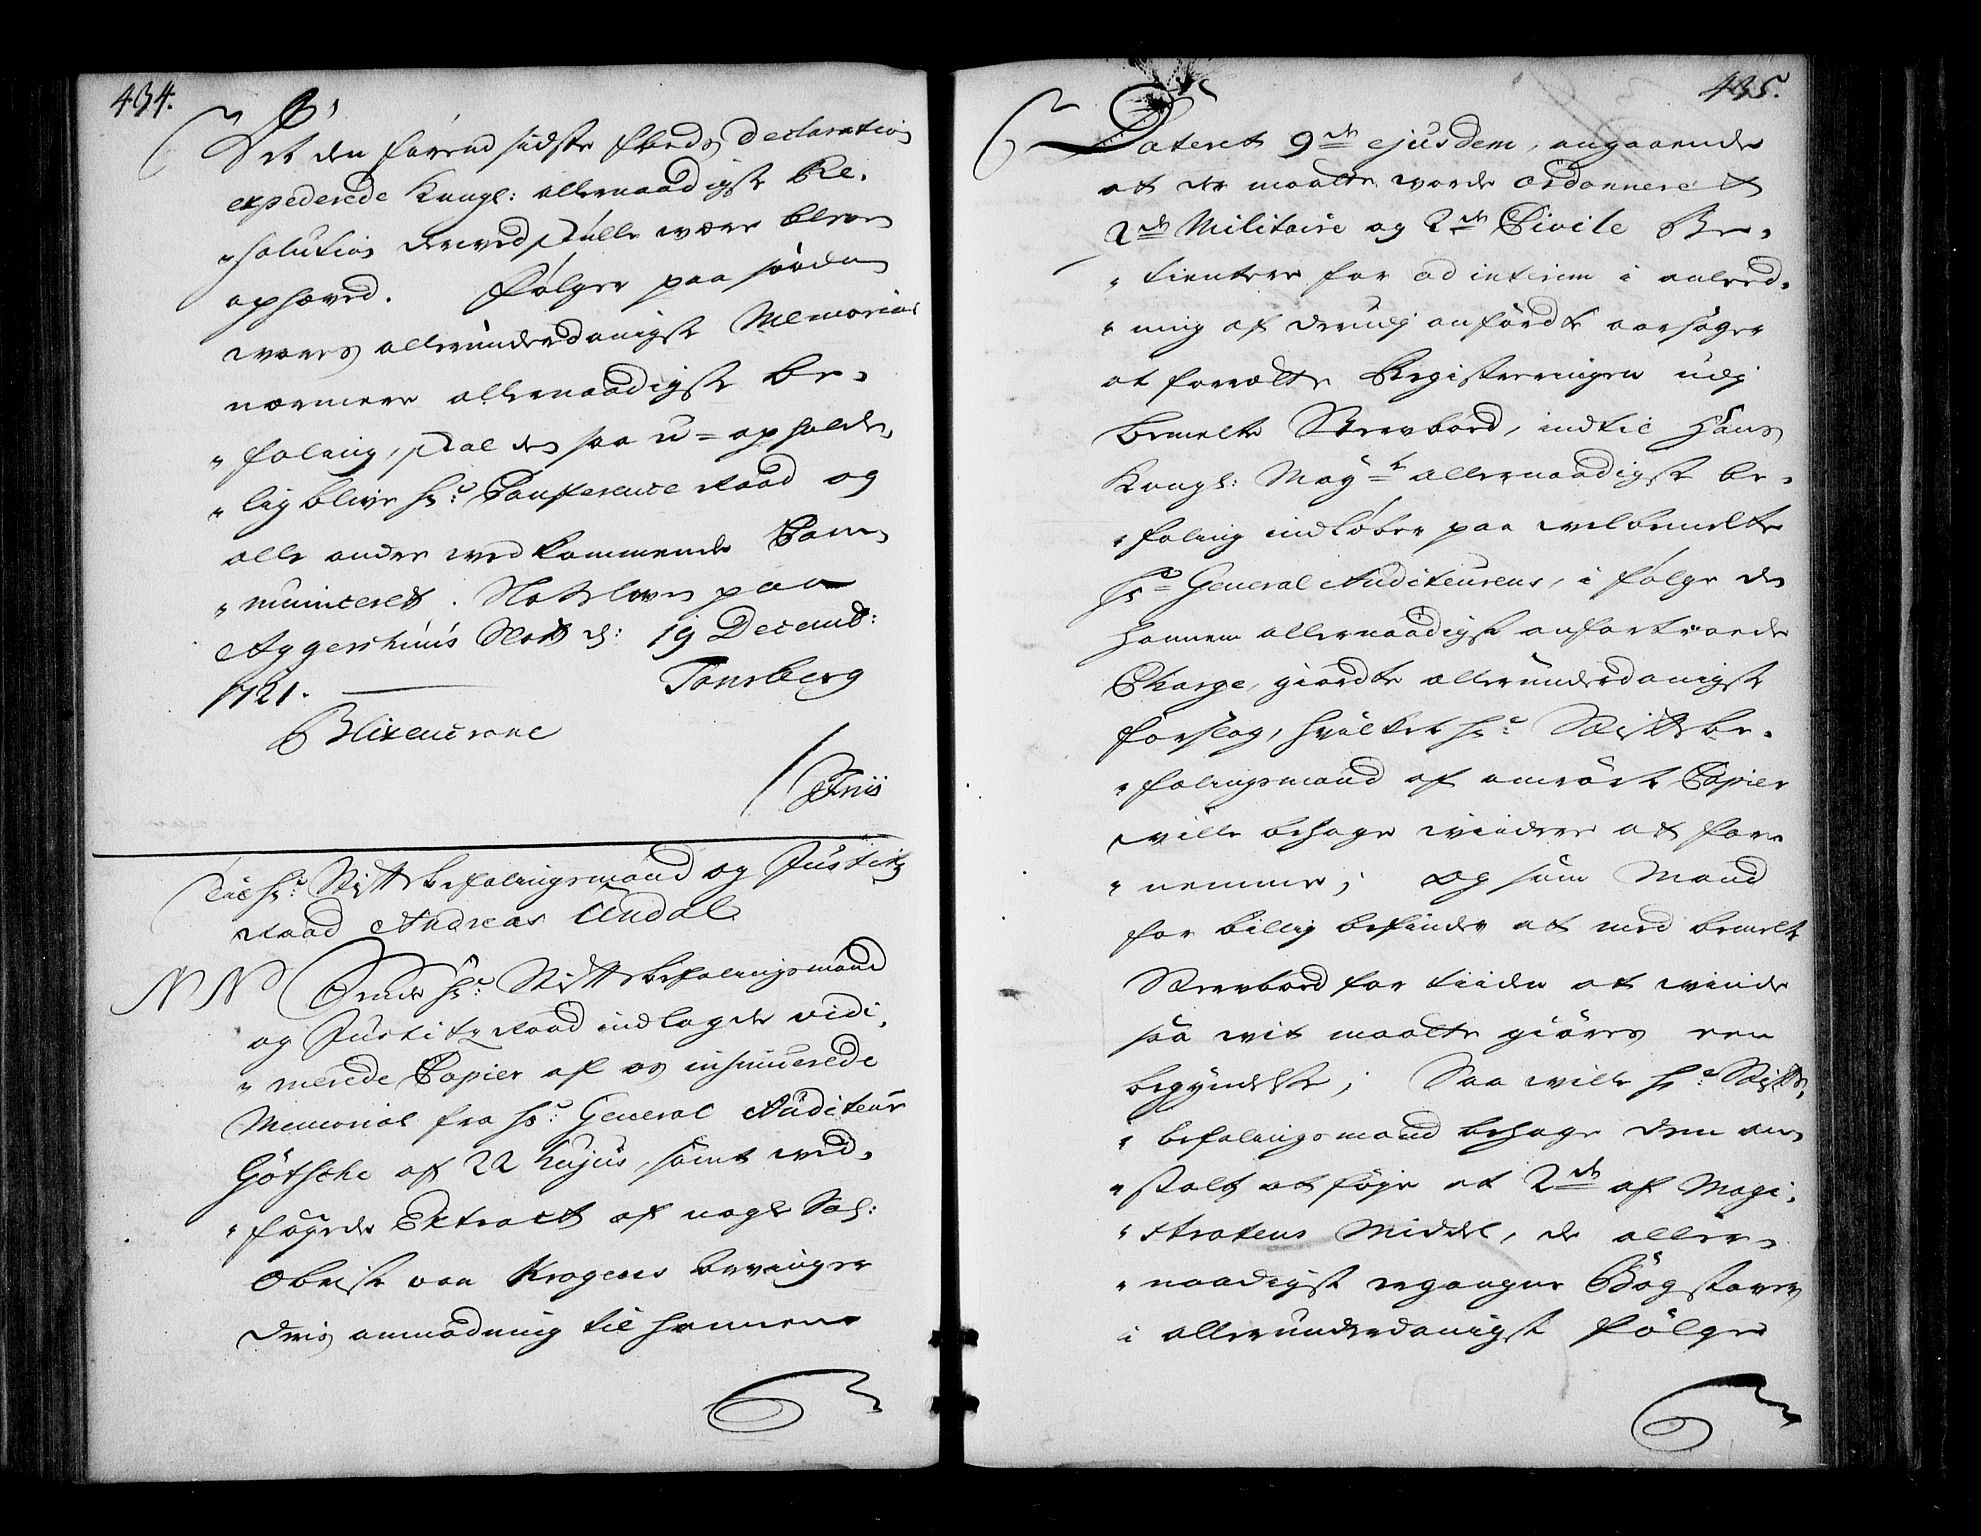 434.
At den forend sidste steds declaration
expederede Kongl: allernaadigste Re-
solution derved skulle være bleven
ophæved. Følger paa saadan
vores allerunderdanigst Memorial
nærmere allernaadigste be-
faling, skal den saa u-opholde-
lig blive Hr: Conference Raad og
alle andre vedkommende Com-
municeret. Slotsloven paa
Aggershuus Slott d: 19 Decemb:
1721.
Tonsberg
Blixencrone
/ Friis
Til Hr: Stiftsbefalingsmand og Justitz
Raad Andreas Undal
N N
Hr: Stiftsbefalingsmand
og Justitz Raad indlagde vidi-
merede Copier af os insinuerede
Memorial fra Hr: General Auditeur
Götsche af 22 hujus, samt ved-
føyede Extract af nogle Sal:
Obrist von Kragens
dens anmodning til hannem
435.
Dateret 9de ejusdem, angaaende
at der maatte worde ordonneret
2de Militaire og 2de Civile Be-
tientere for ad interim i anled-
ning af derudj anførdte aarsager
at forrætte Registeringen udj
bemelte Sterebord, indtil Hans
Kongl: Mayts allernaadigste be-
faling indløber paa velbemelte
Hr: General Auditeurens, i følge den
hannem allernaadigst anfortroede
Charge, giordte allerunderdanigste
forslag, hvilket Hr: Stiftsbe-
falingsmand af omrørte Copier
ville behage viidere at for-
nemme; og som Mand
for billig befinder at med bemelte
Sterebord for tiiden at vinde
saa vit maatte giøres een
begyndelse; Saa ville Hr: Stifts-
befalingsmand behage den an-
stalt at føje at 2de af Magi-
stratens Middel, de aller-
naadigst ergangne Bogstaver
i allerunderdanigst følge